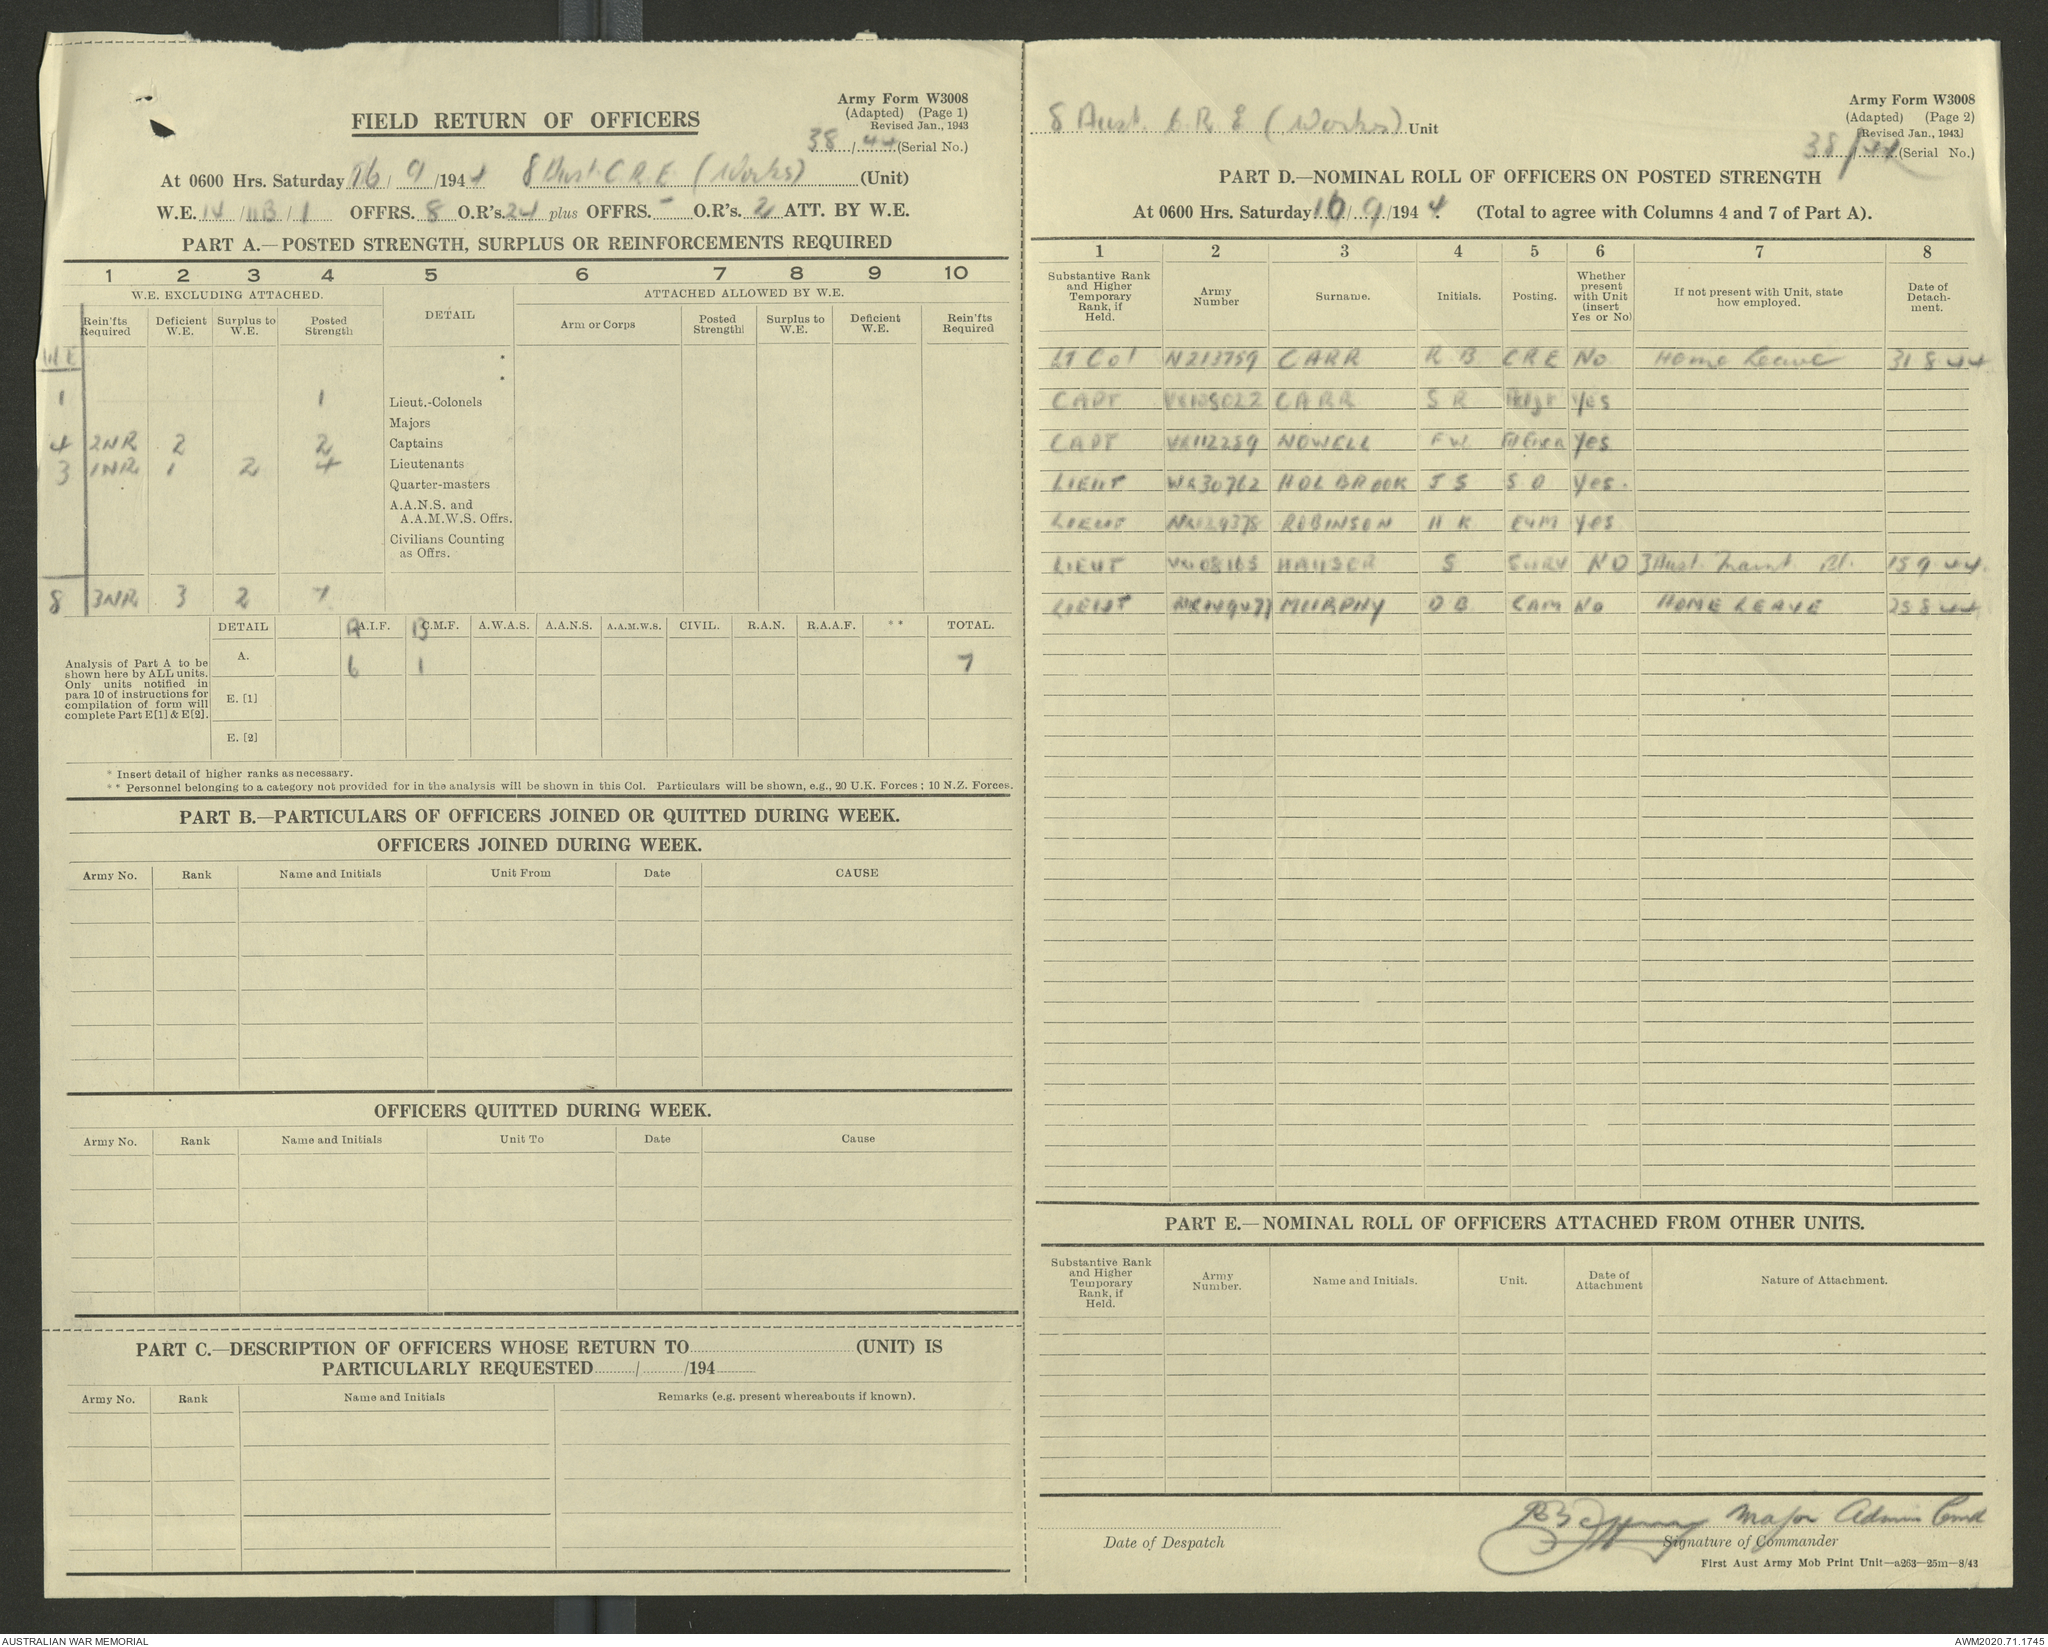 Army Form W3008
(Adapted) (Page 1)
Revised Jan., 1943
FIELD RETURN OF OFFICERS
38/44 (Serial No.)
At 0600 Hrs. Saturday 16/9/1944 8 Aust. C.R.E (Works) (Unit)
W.E. 14/11B/1 OFFRS. 8 O.R's. 24 plus OFFRS. - O.R's. 2 ATT. BY W.E.
PART A.—POSTED STRENGTH, SURPLUS OR REINFORCEMENTS REQUIRED
1 2 3 4 5 6 7 8 9 10
W.E. EXCLUDING ATTACHED. DETAIL ATTACHED ALLOWED BY W.E.
Rein'fts Required Deficient W.E. Surplus to W.E. Posted Strength Arm or Corps Posted Strength Surplus to W.E. Deficient W.E. Rein'fts Required
W E
1 1 Lieut.-Colonels
Majors
4 2NR 2 2 Captains
3 1NR 1 2 4 Lieutenants
Quarter-masters
A.A.N.S. and
A.A.M.W.S. Offrs.
Civilians Counting
as Offrs.
8 3NR 3 2 7
DETAIL A.I.F. C.M.F. A.W.A.S. A.A.N.S. A.A.M.W.S. CIVIL. R.A.N. R.A.A.F. ** TOTAL.
Analysis of Part A to be
shown here by ALL units.
Only units notified in
para 10 of instructions for
compilation of form will
complete Part E[1] & E[2].
A. 6 1 7
E. [1]
E. [2]
* Insert detail of higher ranks as necessary.
** Personnel belonging to a category not provided for in the analysis will be shown in this Col. Particulars will be shown, e.g., 20 U.K. Forces; 10 N.Z. Forces.
PART B.—PARTICULARS OF OFFICERS JOINED OR QUITTED DURING WEEK.
OFFICERS JOINED DURING WEEK.
Army No. Rank Name and Initials Unit From Date CAUSE
OFFICERS QUITTED DURING WEEK.
Army No. Rank Name and Initials Unit To Date Cause
PART C.—DESCRIPTION OF OFFICERS WHOSE RETURN TO (UNIT) IS
PARTICULARLY REQUESTED / /194
Army No. Rank Name and Initials Remarks (e.g. present whereabouts if known).
Army Form W3008
(Adapted) (Page 2)
[Revised Jan., 1943]
8 Aust. C.R.E (Works) Unit
38/44 (Serial No.)
PART D.—NOMINAL ROLL OF OFFICERS ON POSTED STRENGTH
At 0600 Hrs. Saturday 16/9/1944. (Total to agree with Columns 4 and 7 of Part A).
1 2 3 4 5 6 7 8
Substantive Rank and Higher Temporary Rank, if Held. Army Number Surname. Initials. Posting. Whether present with Unit (insert Yes or No) If not present with Unit, state how employed. Date of Detachment.
LT Col N213759 CARR R B CRE No Home Leave 31 8 44
CAPT CARR S R Adjt Yes
CAPT VX112259 NOWELL F W Yes
LIEUT WX30762 HOLBROOK J S S O Yes.
LIEUT ROBINSON H K E&M Yes
LIEUT HAUSER S SURV NO 3 Aust. Maint. Pl. 15 9 44.
LIEUT MURPHY D B CAM No HOME LEAVE 25 8 44
PART E.—NOMINAL ROLL OF OFFICERS ATTACHED FROM OTHER UNITS.
Substantive Rank and Higher Temporary Rank, if Held. Army Number. Name and Initials. Unit. Date of Attachment Nature of Attachment.
Major Admin Comd
Date of Despatch Signature of Commander
First Aust Army Mob Print Unit—a263—25m—8/43
AUSTRALIAN WAR MEMORIAL AWM2020.71.1745